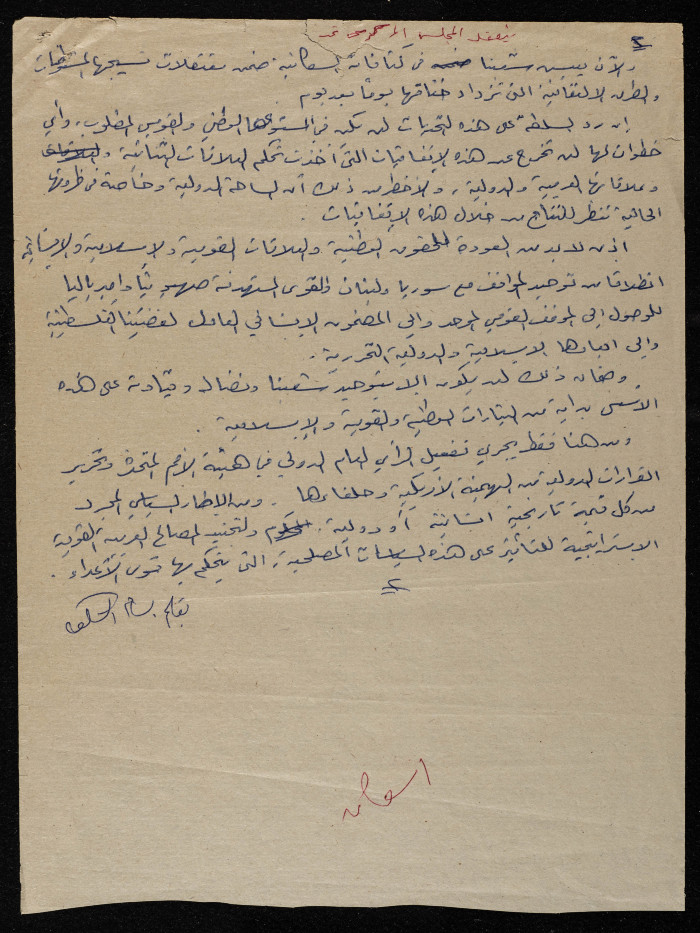 ٢
والآن يعيش شعبنا في كثافات سكانية ضمن معتقلات تسيجها المستوطنات
والطرق الالتفافية التي تزداد خناقها يوماً بعد يوم
إن رد السلطة على هذه التحديات لن يكون في المستوى الوطني والقومي المطلوب، وأي
خطوات لها لن تخرج عن هذه الإتفاقيات التي أخذت تحكم العلاقات الثنائية
وعلاقاتها العربية والدولية، والأخطر من ذلك أن الساحة الدولية وخاصة في ظروفها
الحالية تنظر للنتائج من خلال هذه الإتفاقيات.
اذن لابد من العودة للحقوق الوطنية والعلاقات القومية والاسلامية والإنسانية
انطلاقا من توحيد المواقف مع سوريا ولبنان والقوى المستهدفة صهيونياً وامبريالياً
للوصول الى الموقف القومي الموحد والى المضمون الانساني العادل لقضيتنا الفلسطينية
والى ابعادها الاسلامية والدولية التحررية.
وضمان ذلك لن يكون إلا بتوحيد شعبنا ونضاله وقيادته على هذه
الأسس بداية من التيارات الوطنية والقومية والإسلامية.
ومن هنا فقط يجري تفعيل الرأي العام الدولي في هيئة الأمم المتحدة وتحرير
القرارات الدولية من الهيمنة الأمريكية وحلفاءها. ومن الاطار السياسي المجرد
من كل قيمة تاريخية انسانية أو دولية. ولتجنيد المصالح العربية القومية
الاستراتيجية للتأثير على هذه السياسات المصلحية، التي يتحكم بها قوى الأعداء.
٢
بقلم بسام